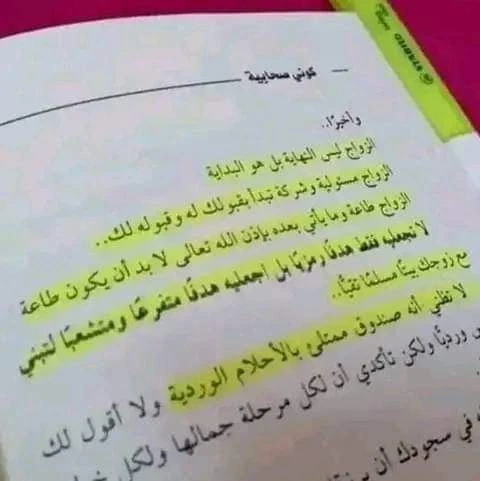 STABILO
كوني صحابية
وأخيرًا..
الزواج ليس النهاية بل هو البداية
الزواج مسئولية وشركة تبدأ بقبولك له وقبوله لك..
الزواج طاعة وما يأتي بعده بإذن الله تعالى لا بد أن يكون طاعة
لا تجعليه فقط هدفًا رمزيًا بل اجعليه هدفًا متفرعًا ومتشعبًا لتبني
مع زوجك بيتًا مسلمًا نقيًّا..
لا تظني أنه صندوق ممتلئ بالأحلام الوردية ولا أقول لك
ورديًّا ولكن تأكدي أن لكل مرحلة جمالها ولكل
في سجودك أن